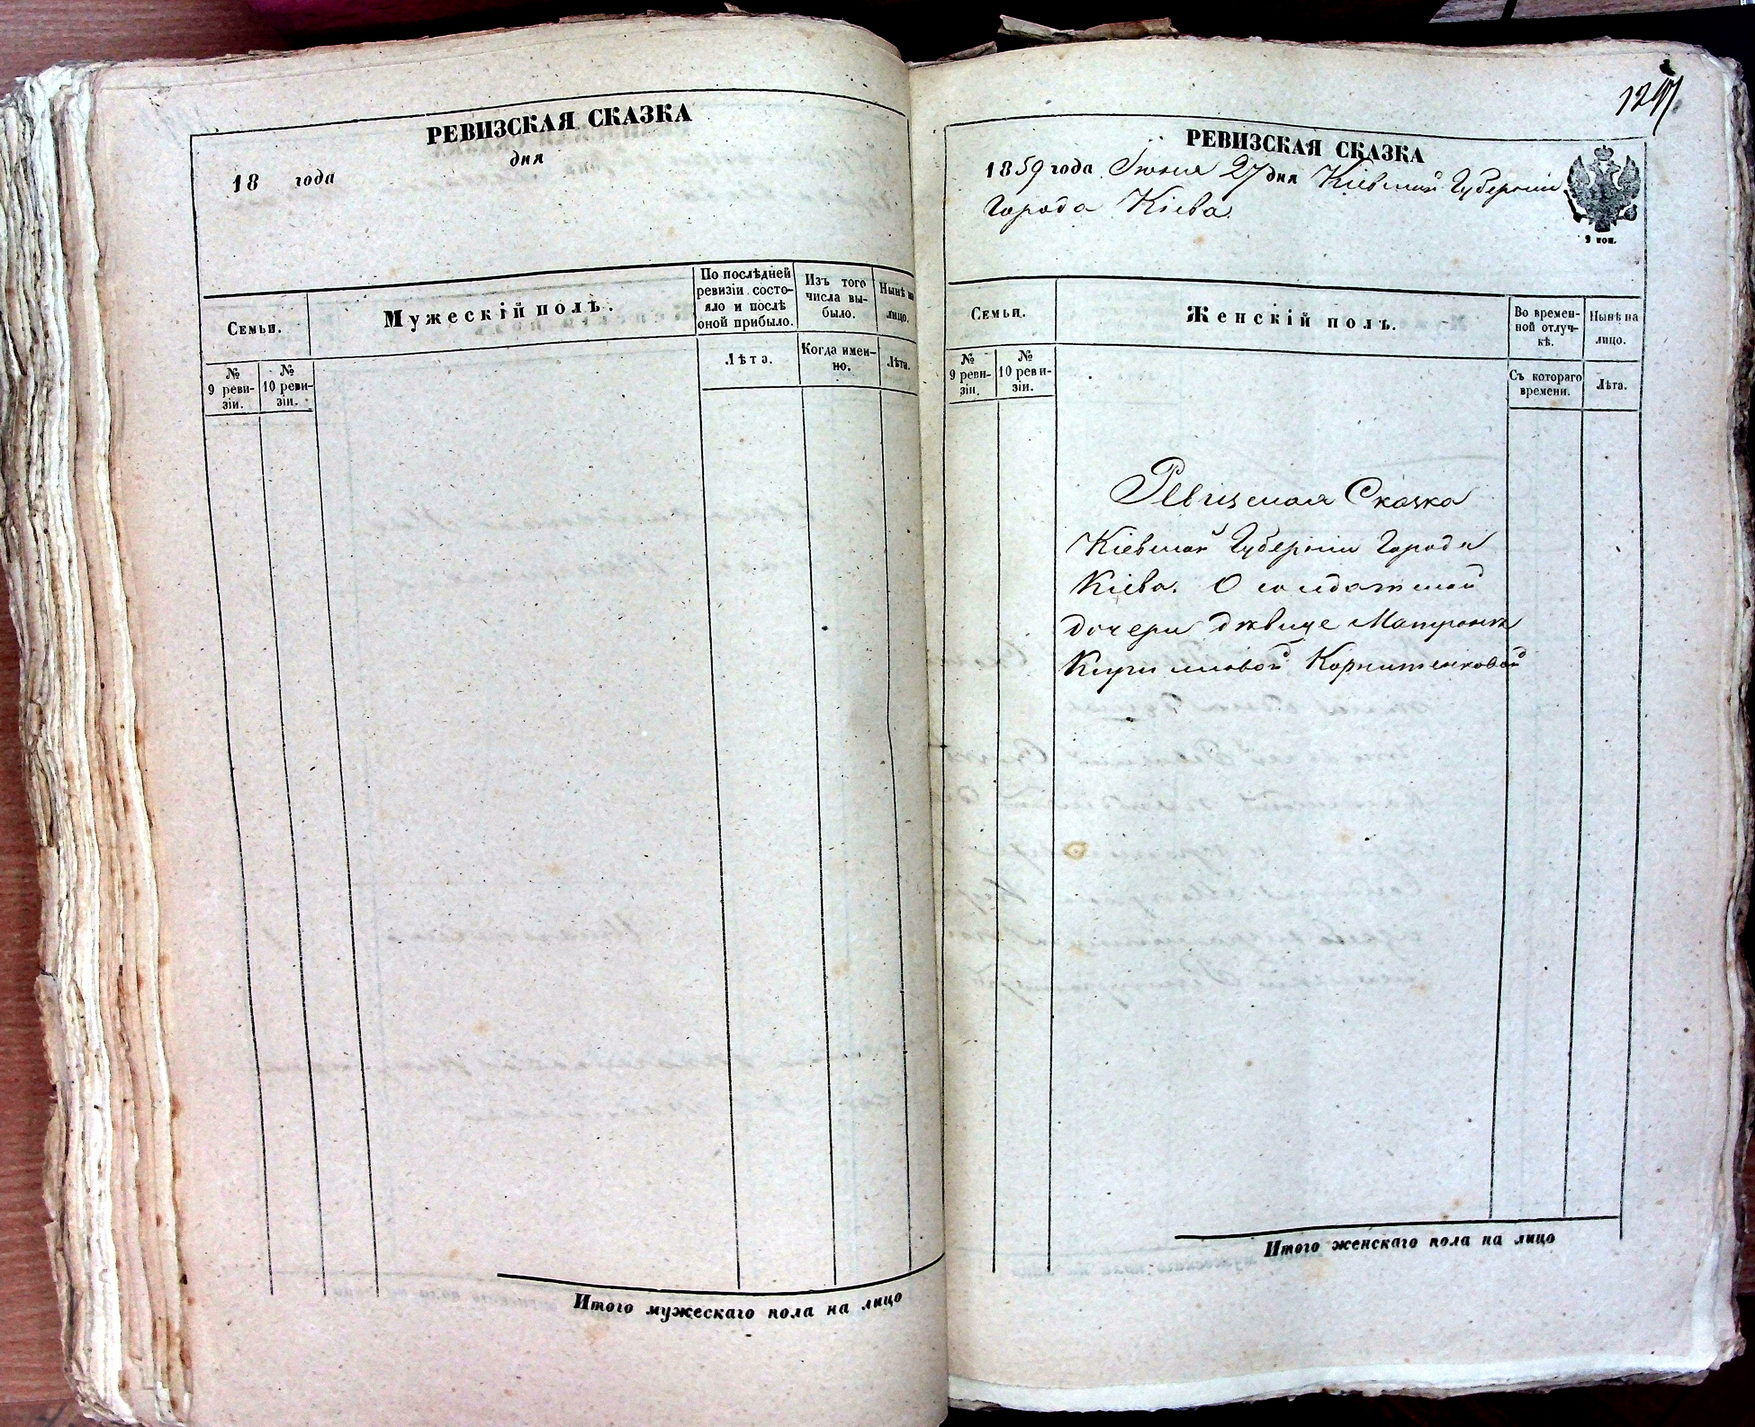 РЕВИЗСКАЯ СКАЗКА
дня
18 года
Семьи.
Мужескій полъ.
По послѣдней ревизіи состо-
яло и послѣ
оной прибыло.
Изъ того
числа вы-
было.
Нынѣ на
лицо.
№
9 реви-
зіи.
№
10 реви-
зіи.
Лѣта.
Когда имен-
но.
Лѣта.
Итого мужескаго пола на лицо
РЕВИЗСКАЯ СКАЗКА
1859 года Іюня 27 дня Кіевской Губерніи
Города Кіева
Семьи.
Женскій полъ.
Во времен-
ной отлуч-
кѣ.
Нынѣ на
лицо.
№
9 реви-
зіи.
№
10 реви-
зіи.
Съ котораго
времени.
Лѣта.
Ревизская Сказка
Кіевской Губерніи Города
Кіева. О солдатской
дочери дѣвице Матроне
Кириловой
Итого женскаго пола на лицо